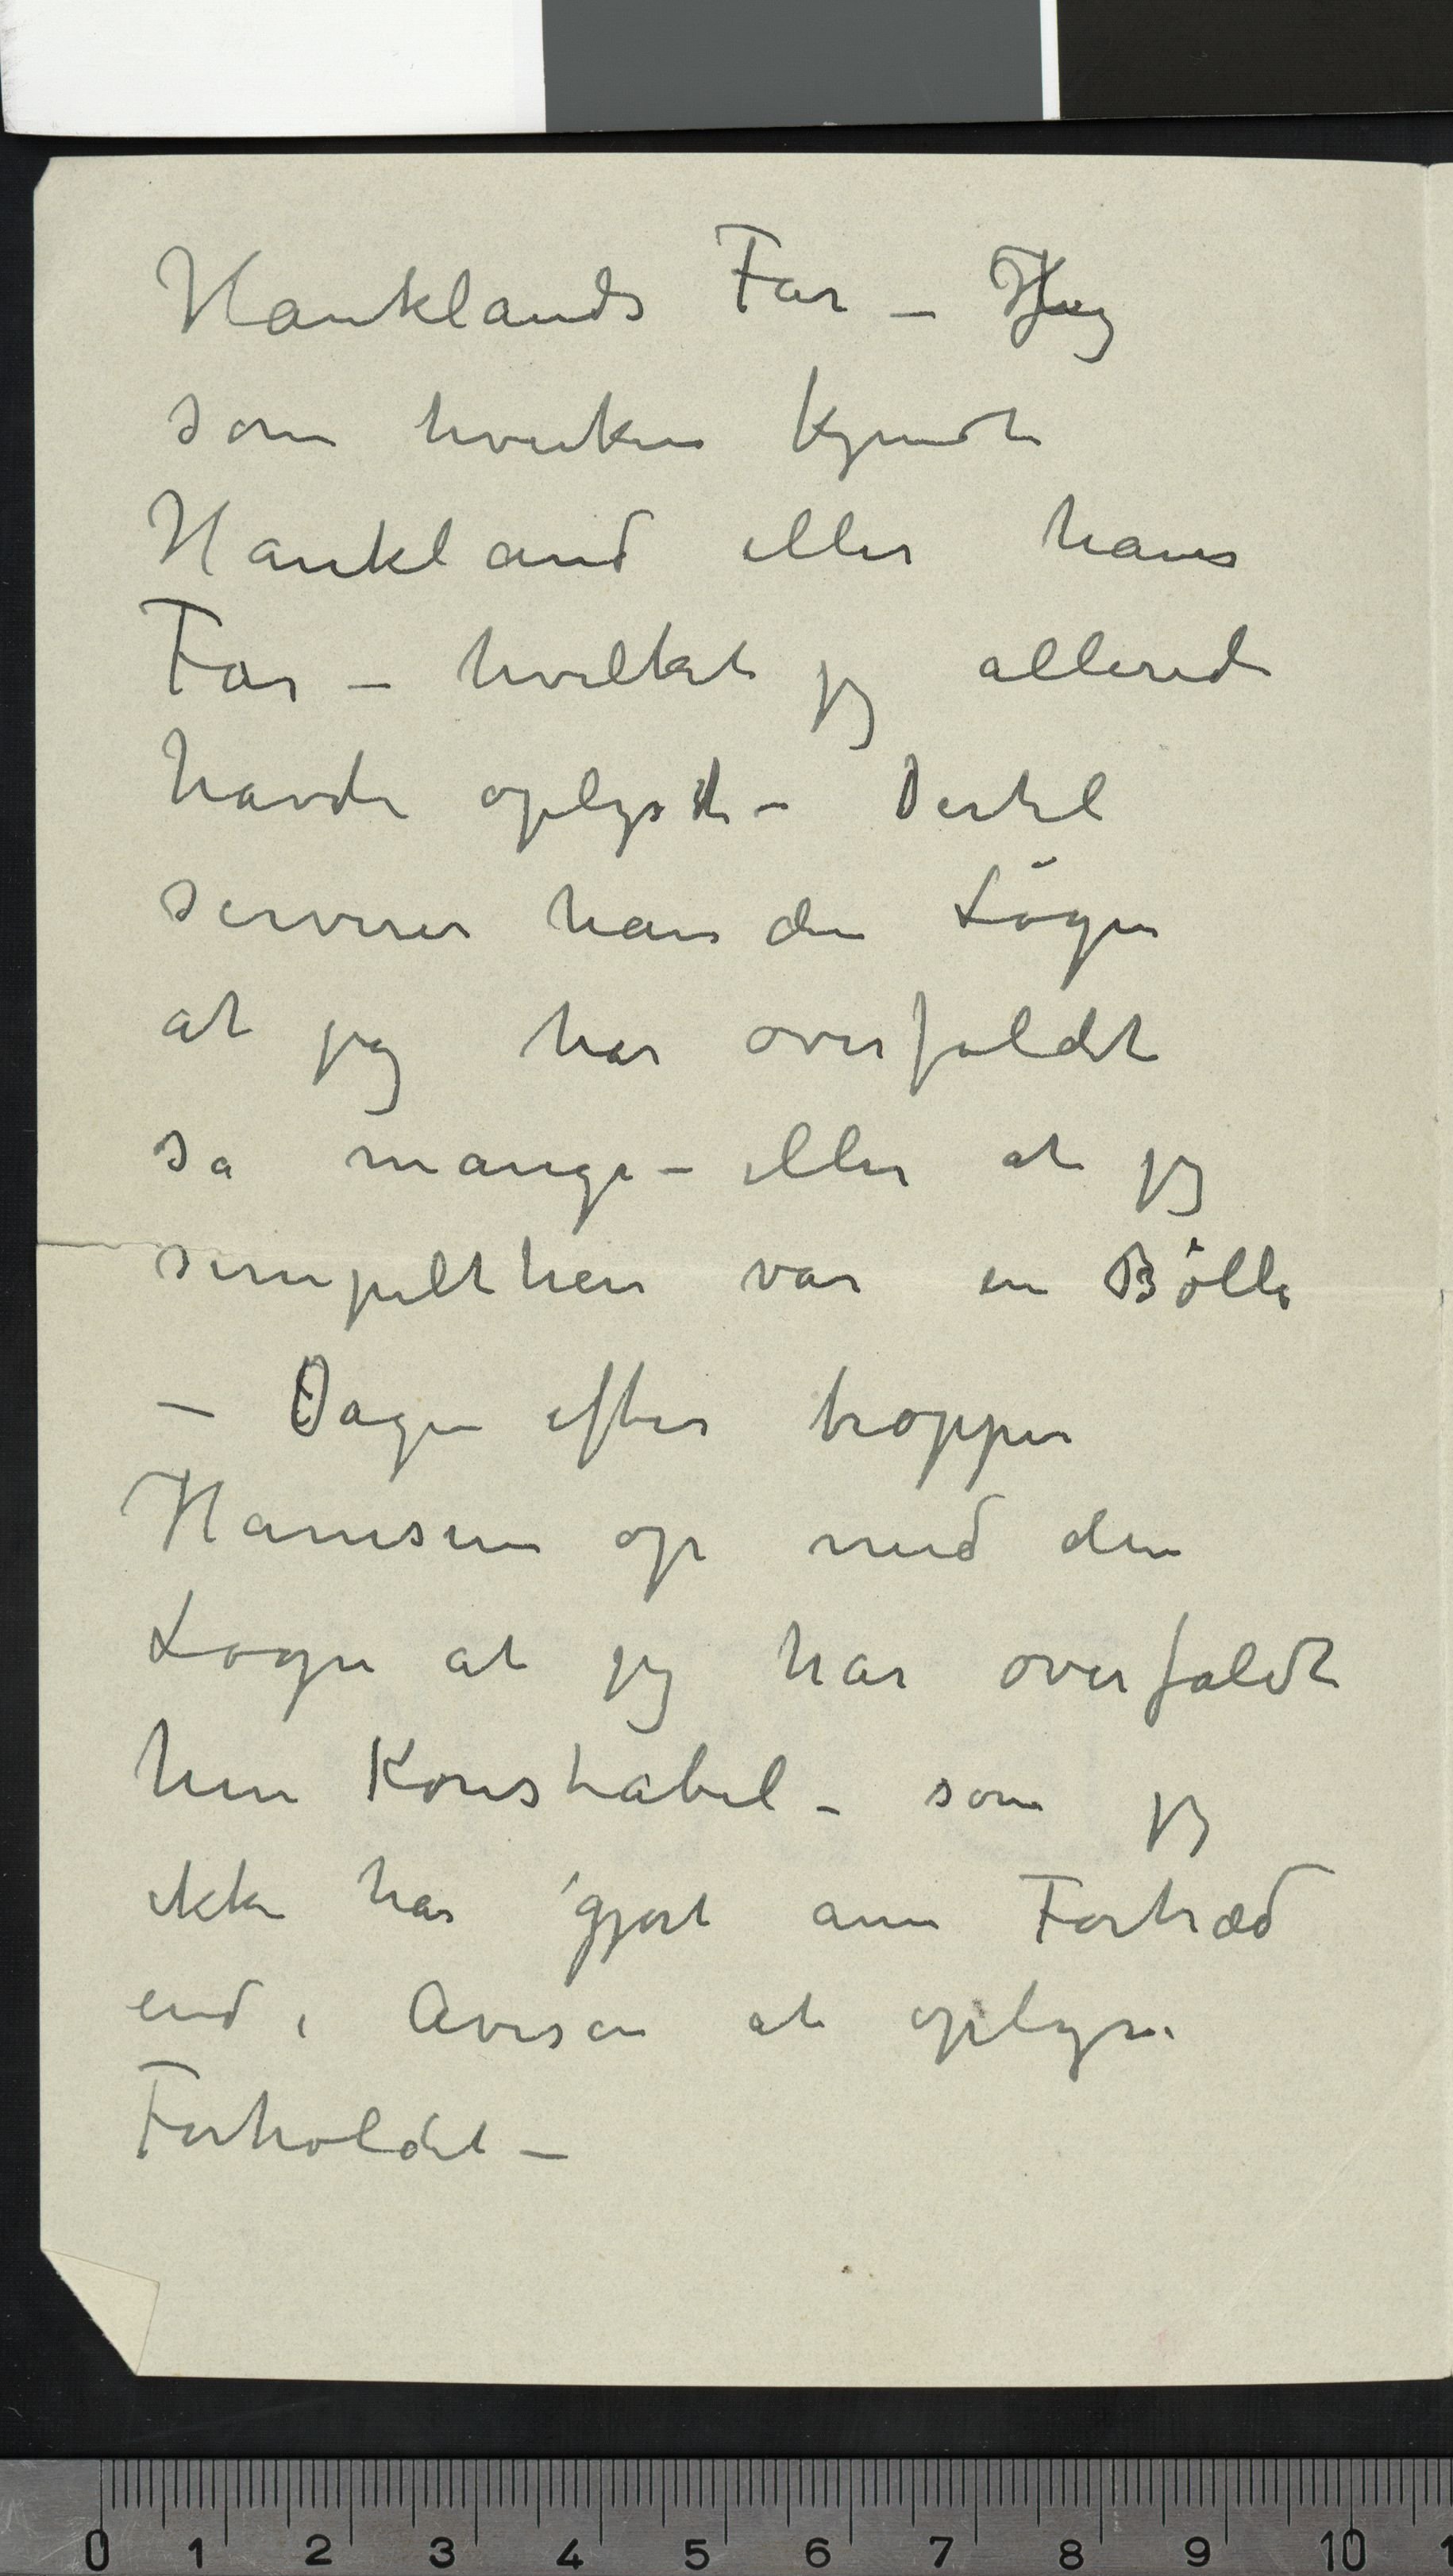 Hauklands Far – Jeg
som hverken kjendte
Haukland eller hans
Far – hvilket jeg allerede
havde oplyst – Dertil
serverer han den Løgn
at jeg har overfaldt
så mange – eller at jeg
simpelthen var en Bølle
– Dagen efter tropper
Hamsun op med den
Løgn at jeg har overfaldt
hin Konstabel – som jeg
ikke har gjort anen Fortræd
end i Avisen at oplyse
Forholdet –
0 1 2 3 4 5 6 7 8 9 10